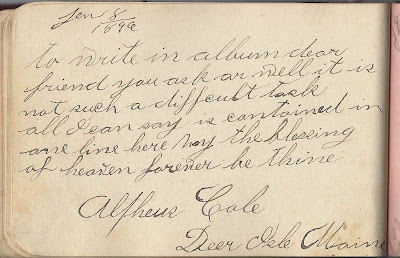 Jan 8
1896
to write in album dear
friend you ask or well it is
not such a difficult task
all I can say is contained in
one line here may the blessing
of heaven forever be thine
Alpheus Cole
Deer Isle Maine